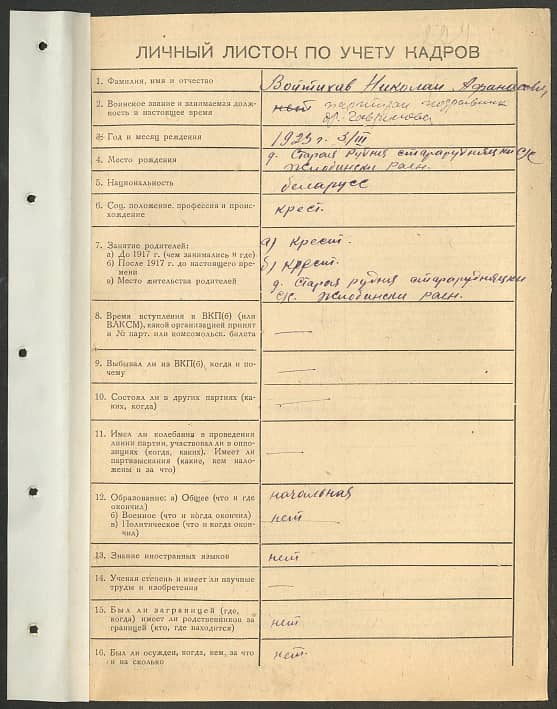 ЛИЧНЫЙ ЛИСТОК ПО УЧЕТУ КАДРОВ
1. Фамилия, имя и отчество
Войтихив Николай Афанасович
2. Воинское звание и занимаемая долж-
ность в настоящее время
партизан
3. Год и месяц рождения
1923 г. 3/III
4. Место рождения
д. Старая рудня старарудняцки с/с
Жлобински раен.
5. Национальность
беларусс
6. Соц. положение, профессия и проис-
хождение
крест.
7. Занятие родителей:
а) До 1917 г. (чем занимались и где)
б) После 1917 г. до настоящего вре-
мени
в) Место жительства родителей
а) крест.
б) крест.
д. Старая рудня старарудняцки
с/с. Жлобински раен.
8. Время вступления в ВКП(б) (или
ВЛКСМ), какой организацией принят
и № парт. или комсомольск. билета
—
9. Выбывал ли из ВКП(б), когда и по-
чему
—
10. Состоял ли в других партиях (ка-
ких, когда)
—
11. Имел ли колебания в проведении
линии партии, участвовал ли в оппо-
зициях (когда, каких). Имеет ли
партвзыскания (какие, кем нало-
жены и за что)
—
12. Образование: а) Общее (что и где
окончил)
б) Военное (что и когда окончил)
в) Политическое (что и когда окон-
чил)
начальная
нет —
13. Знание иностранных языков
нет
14. Ученая степень и имеет ли научные
труды и изобретения
—
15. Был ли заграницей (где,
когда) имеет ли родственников за
границей (кто, где находится)
нет
16. Был ли осужден, когда, кем, за что
и на сколько
нет.